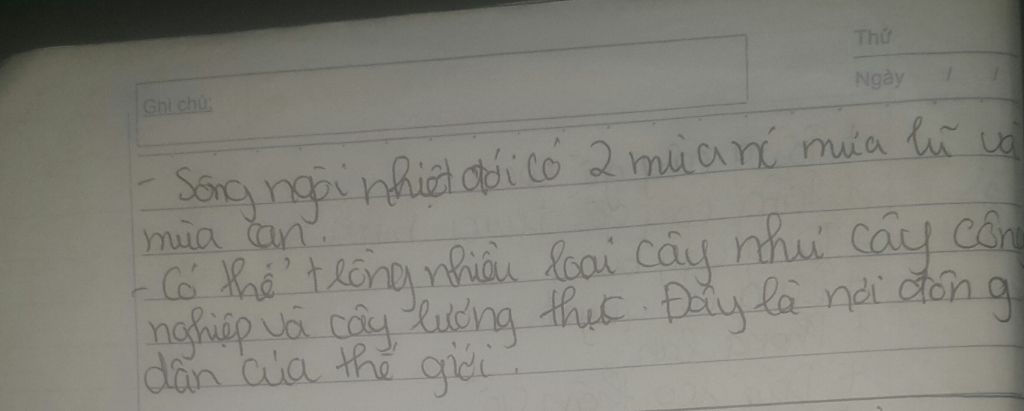 Thứ
Ngày / /
Ghi chú:
- Sông ngòi nhiệt đới có 2 mùa mùa lũ và
mùa cạn.
- Có thể trồng nhiều loại cây như cây công
nghiệp và cây lương thực. Đây là nơi đông
dân của thế giới.